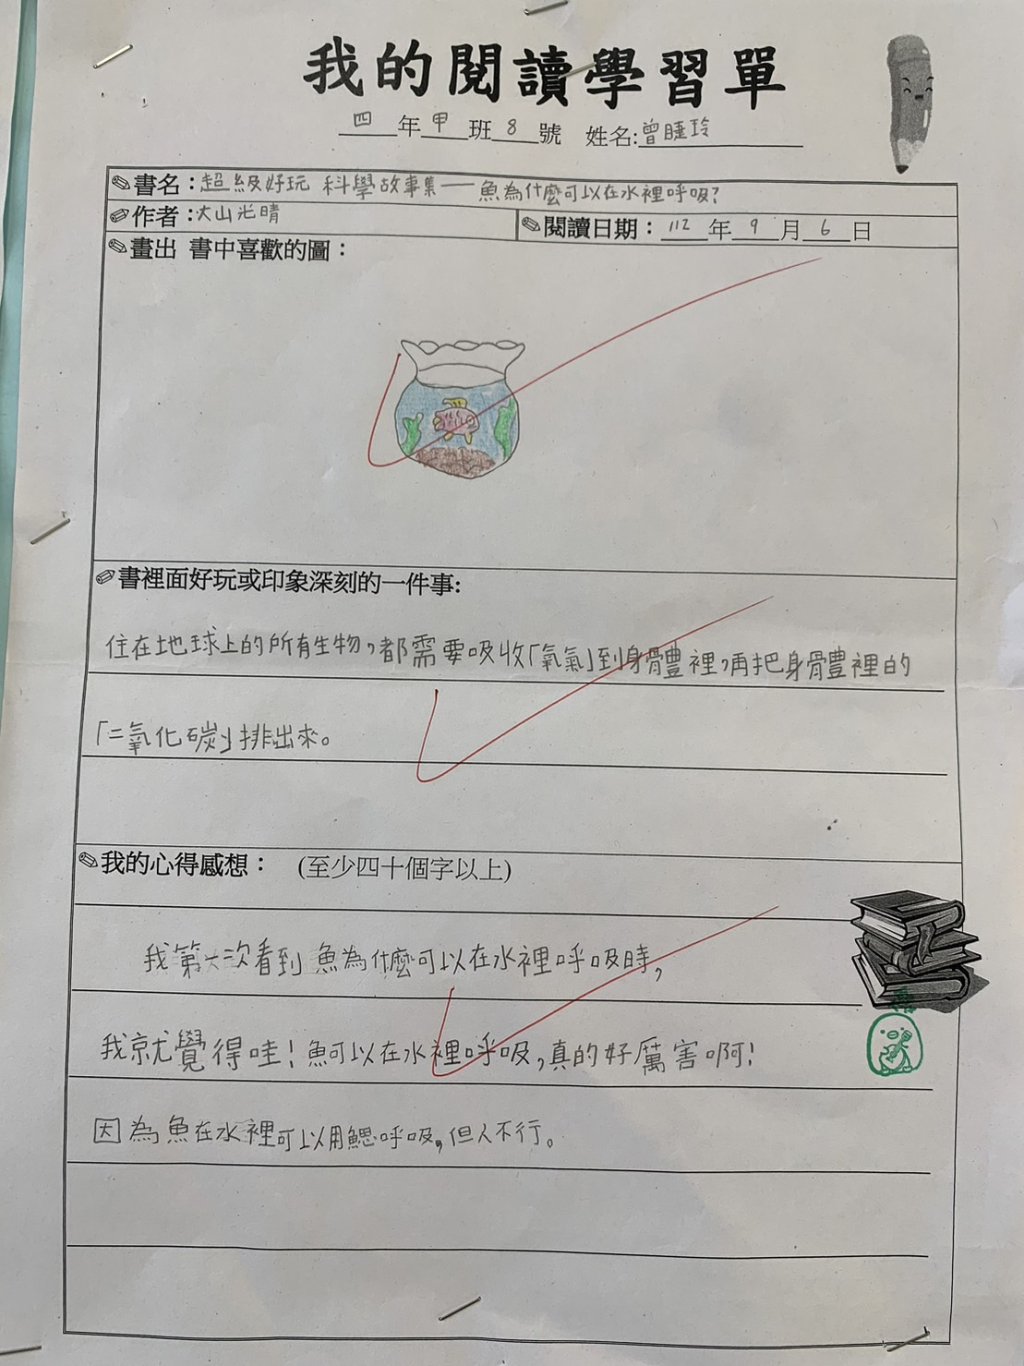 我的閱讀學習單
四年甲班8號 姓名:曾睫玲
書名：超級好玩 科學故事集——魚為什麼可以在水裡呼吸?
作者：大山光晴
閱讀日期：112年9月6日
畫出 書中喜歡的圖：
書裡面好玩或印象深刻的一件事:
住在地球上的所有生物,都需要吸收「氧氣」到身體裡,再把身體裡的
「二氧化碳」排出來。
我的心得感想： (至少四十個字以上)
我第一次看到魚為什麼可以在水裡呼吸時,
我就覺得哇!魚可以在水裡呼吸,真的好厲害啊!
因為魚在水裡可以用鰓呼吸,但人不行。